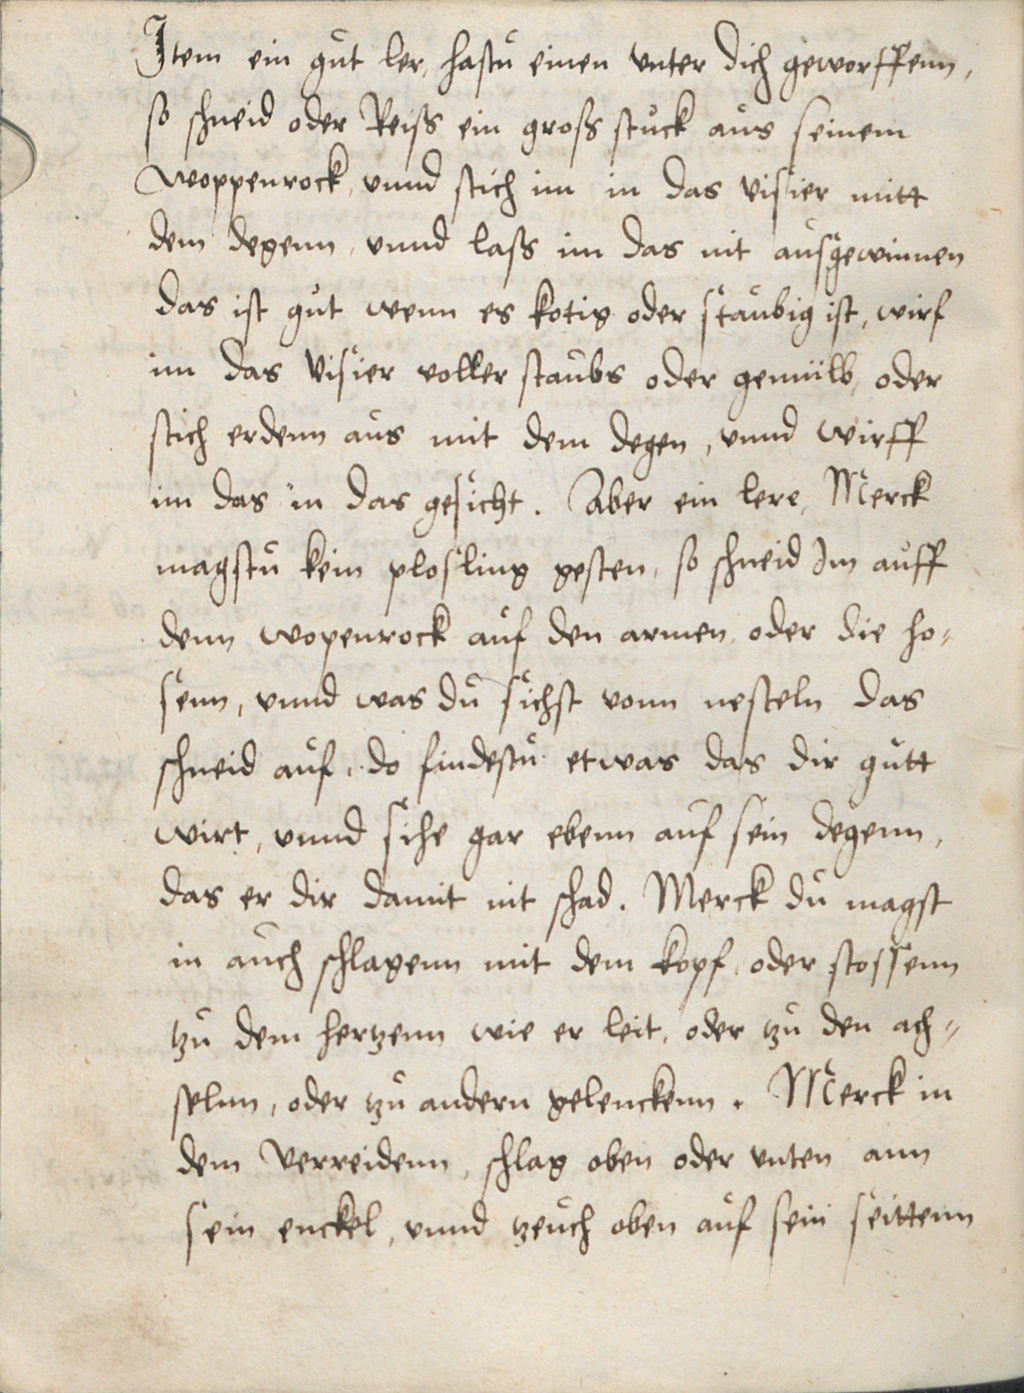 Item ein gut ler, hastu einen unter dich geworffenn,
so schneid oder Reiss ein gross stuck aus seinem
woppenrock, vnnd stich im in das visier mitt
dem degenn, vnnd lass im das nit ausgewinnen
das ist gut wenn es kotig oder staubig ist, wirf
im das visier voller staubs oder gemülb, oder
stich erdenn aus mit dem degen, vnnd wirff
im das in das gesicht. Aber ein lere, Merck
magstu kein plosling gesten, so schneid Im auff
denn wopenrock auf den armen, oder die ho-
senn, vnnd was du sichst vonn nesteln das
schneid auf, do findestu etwas das dir gutt
wirt, vnnd sihe gar ebenn auf sein degenn,
das er dir damit nit schad. Merck du magst
in auch schlagenn mit dem kopf, oder stossenn
tzu dem hertzenn wie er leit, oder tzu den ach-
selnn, oder tzu andern gelenckenn. Merck in
dem verreidenn, schlag oben oder vnten ann
sein enckel, vnnd tzeuch oben auf sein seittenn